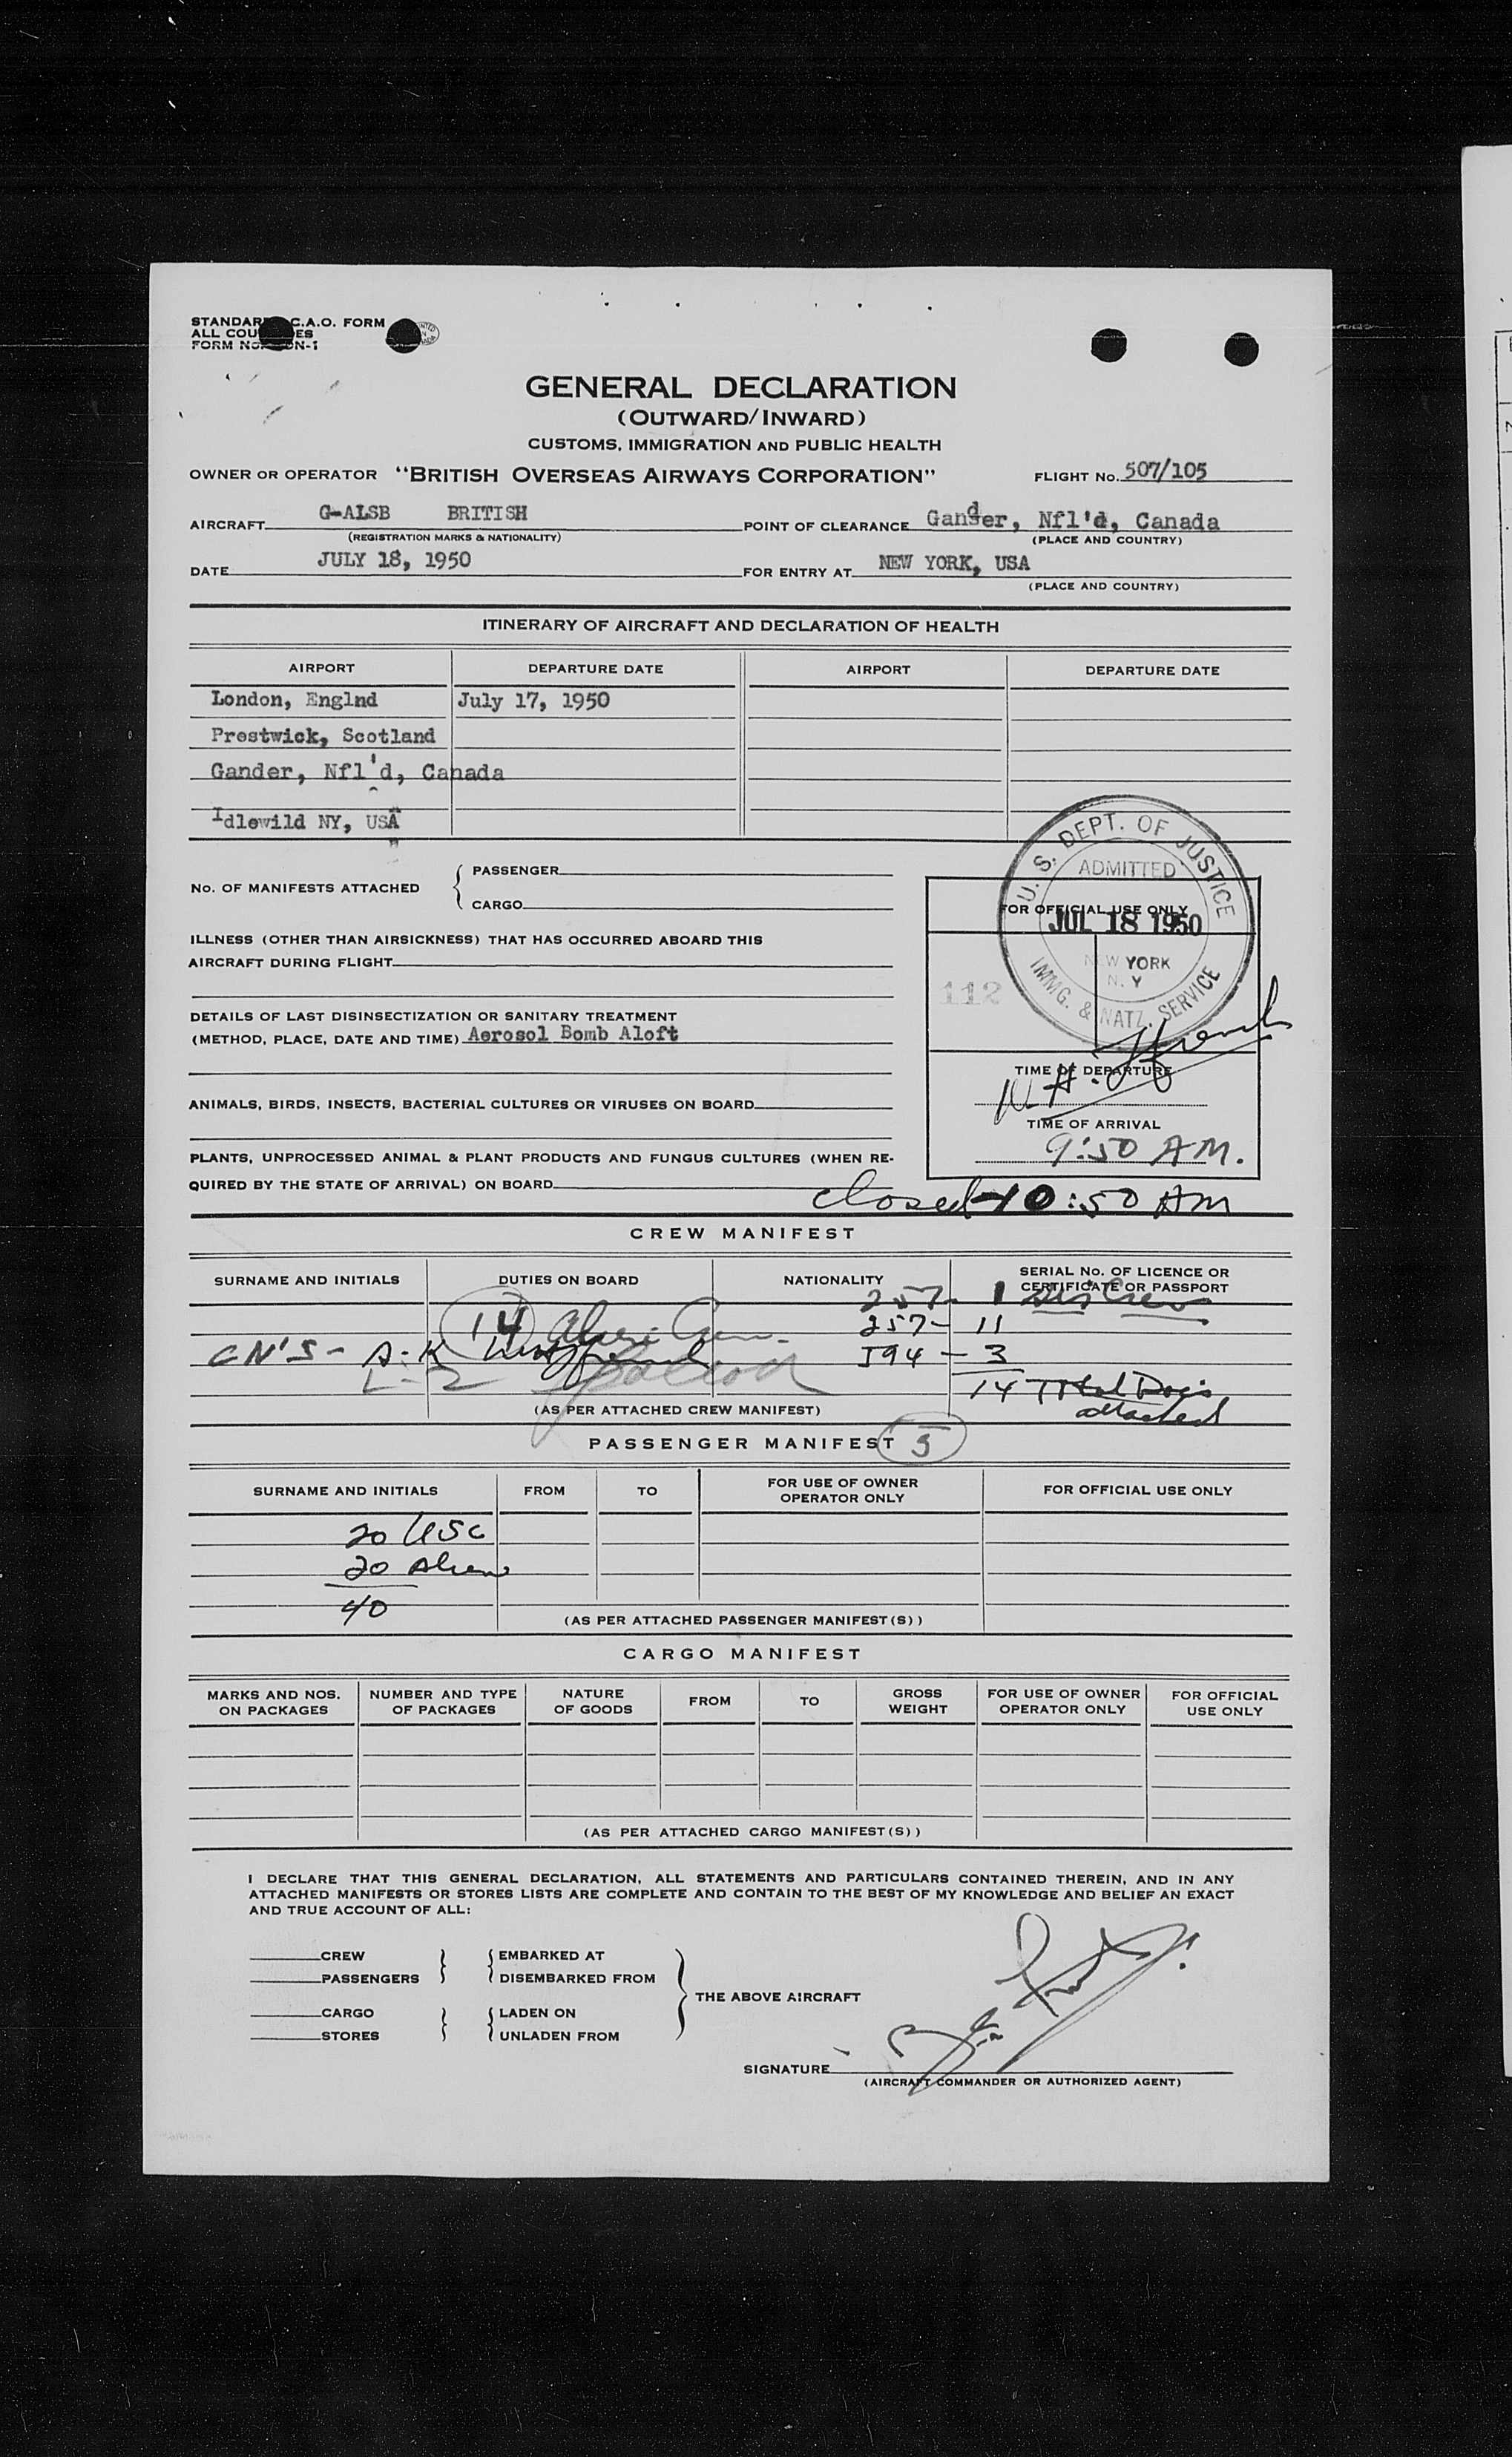 STANDARD I.C.A.O. FORM
ALL COU ES
FORM No. N-1
GENERAL DECLARATION
(OUTWARD/INWARD)
CUSTOMS, IMMIGRATION AND PUBLIC HEALTH
OWNER OR OPERATOR "BRITISH OVERSEAS AIRWAYS CORPORATION" FLIGHT No. 507/105
AIRCRAFT G-ALSB BRITISH POINT OF CLEARANCE Gander, Nfl'd, Canada
(REGISTRATION MARKS & NATIONALITY) (PLACE AND COUNTRY)
DATE JULY 18, 1950 FOR ENTRY AT NEW YORK, USA
(PLACE AND COUNTRY)
ITINERARY OF AIRCRAFT AND DECLARATION OF HEALTH
AIRPORT DEPARTURE DATE AIRPORT DEPARTURE DATE
London, Englnd July 17, 1950
Prestwick, Scotland
Gander, Nfl'd, Canada
Idlewild NY, USA
U. S. DEPT. OF JUSTICE
ADMITTED
No. OF MANIFESTS ATTACHED { PASSENGER
CARGO
FOR OFFICIAL USE ONLY
JUL 18 1950
NEW YORK
N. Y
IMMG. & NATZ. SERVICE
112
ILLNESS (OTHER THAN AIRSICKNESS) THAT HAS OCCURRED ABOARD THIS
AIRCRAFT DURING FLIGHT
DETAILS OF LAST DISINSECTIZATION OR SANITARY TREATMENT
(METHOD, PLACE, DATE AND TIME) Aerosol Bomb Aloft
TIME OF DEPARTURE
ANIMALS, BIRDS, INSECTS, BACTERIAL CULTURES OR VIRUSES ON BOARD
TIME OF ARRIVAL
9:50 AM.
PLANTS, UNPROCESSED ANIMAL & PLANT PRODUCTS AND FUNGUS CULTURES (WHEN RE-
QUIRED BY THE STATE OF ARRIVAL) ON BOARD
closed 10:50 AM
CREW MANIFEST
SURNAME AND INITIALS DUTIES ON BOARD NATIONALITY SERIAL No. OF LICENCE OR
CERTIFICATE OR PASSPORT
257- 1
14 257- 11
CN'S- A-K I94 - 3
L-Z
14 Total Docs
attached
(AS PER ATTACHED CREW MANIFEST)
PASSENGER MANIFEST 5
SURNAME AND INITIALS FROM TO FOR USE OF OWNER
OPERATOR ONLY FOR OFFICIAL USE ONLY
20 USC
20 Aliens
40
(AS PER ATTACHED PASSENGER MANIFEST(S))
CARGO MANIFEST
MARKS AND NOS.
ON PACKAGES NUMBER AND TYPE
OF PACKAGES NATURE
OF GOODS FROM TO GROSS
WEIGHT FOR USE OF OWNER
OPERATOR ONLY FOR OFFICIAL
USE ONLY
(AS PER ATTACHED CARGO MANIFEST(S))
I DECLARE THAT THIS GENERAL DECLARATION, ALL STATEMENTS AND PARTICULARS CONTAINED THEREIN, AND IN ANY
ATTACHED MANIFESTS OR STORES LISTS ARE COMPLETE AND CONTAIN TO THE BEST OF MY KNOWLEDGE AND BELIEF AN EXACT
AND TRUE ACCOUNT OF ALL:
CREW EMBARKED AT
PASSENGERS DISEMBARKED FROM
THE ABOVE AIRCRAFT
CARGO LADEN ON
STORES UNLADEN FROM
SIGNATURE
(AIRCRAFT COMMANDER OR AUTHORIZED AGENT)